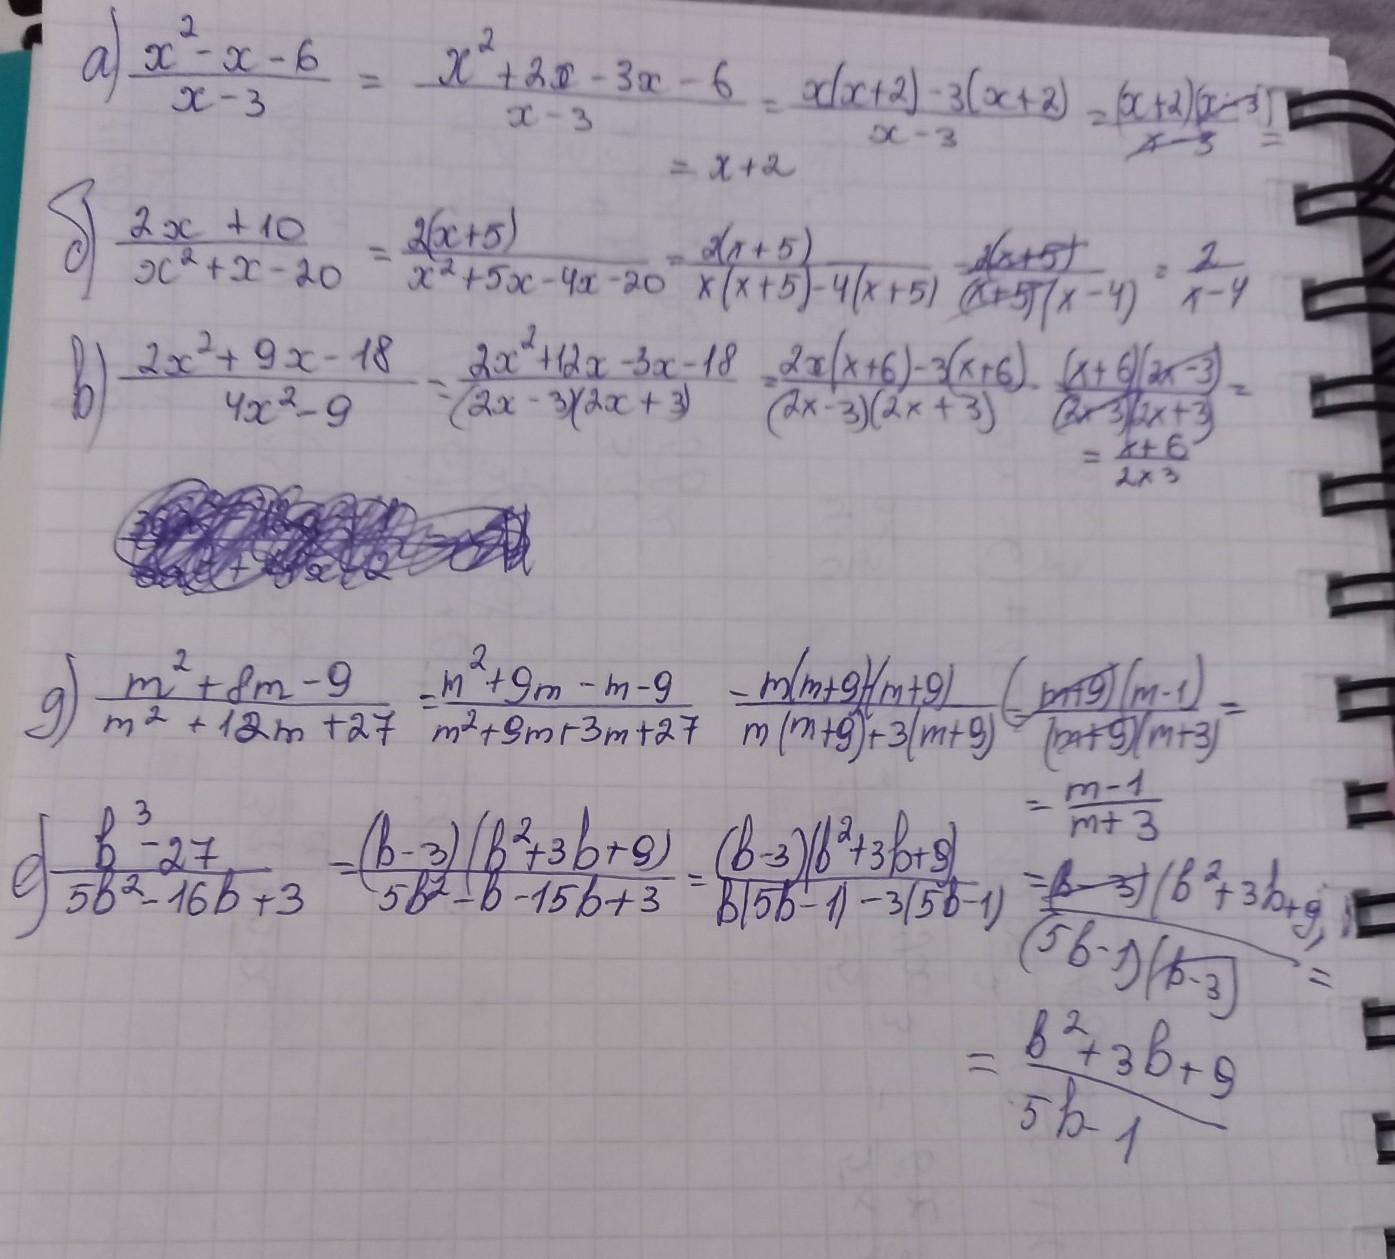 а) (x² - x - 6)/(x - 3) = (x² + 2x - 3x - 6)/(x - 3) = (x(x+2) - 3(x+2))/(x - 3) = ((x+2)(x-3))/(x-3) =
= x + 2
б) (2x + 10)/(x² + x - 20) = (2(x+5))/(x² + 5x - 4x - 20) = (2(x+5))/(x(x+5) - 4(x+5)) = (2(x+5))/((x+5)(x-4)) = 2/(x-4)
в) (2x² + 9x - 18)/(4x² - 9) = (2x² + 12x - 3x - 18)/((2x - 3)(2x + 3)) = (2x(x+6) - 3(x+6))/((2x-3)(2x+3)) = ((x+6)(2x-3))/((2x-3)(2x+3)) =
= (x+6)/(2x 3)
д) (m² + 8m - 9)/(m² + 12m + 27) = (m² + 9m - m - 9)/(m² + 9m + 3m + 27) = (m(m+9)-(m+9))/(m(m+9)+3(m+9)) = ((m+9)(m-1))/((m+9)(m+3)) =
= (m-1)/(m+3)
е) (b³ - 27)/(5b² - 16b + 3) = ((b-3)(b²+3b+9))/(5b² - b - 15b + 3) = ((b-3)(b²+3b+9))/(b(5b-1) - 3(5b-1)) = ((b-3)(b²+3b+9))/((5b-1)(b-3)) =
= (b²+3b+9)/(5b-1)